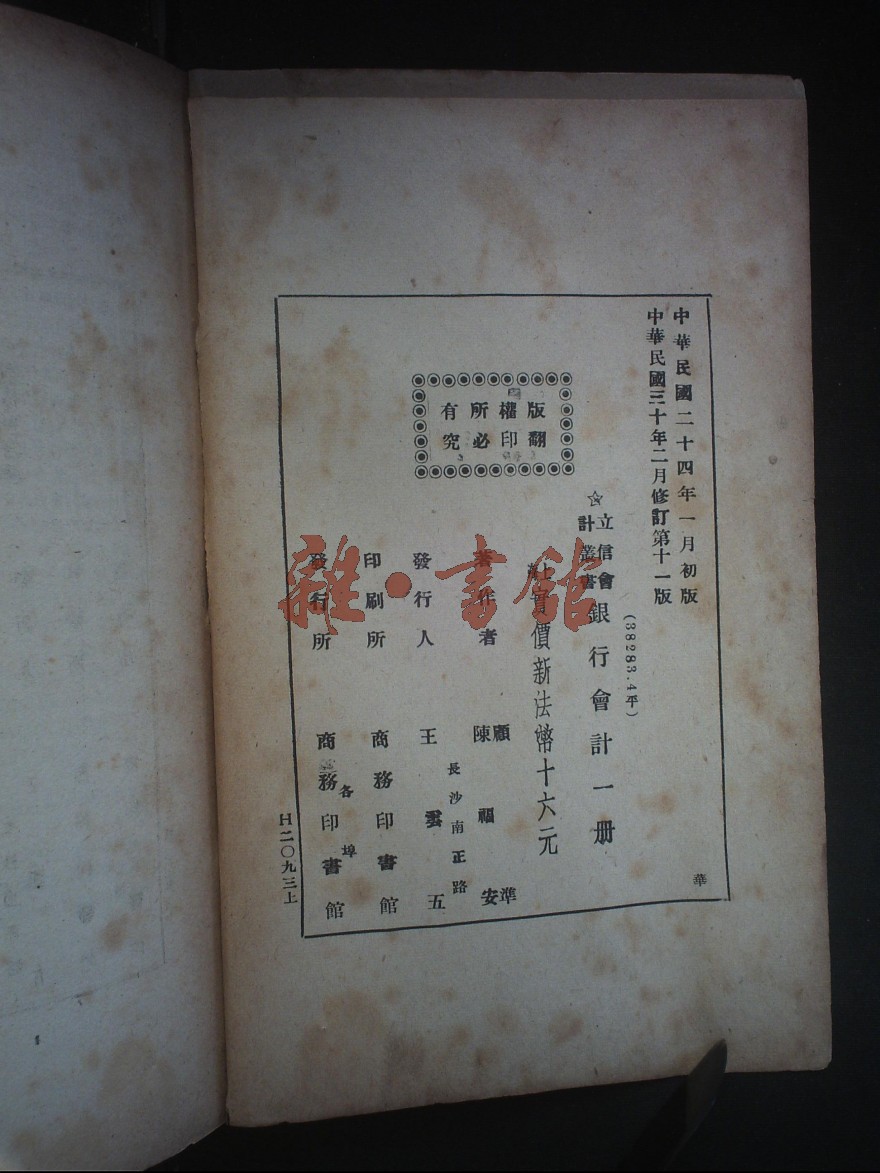 中華民國二十四年一月初版
中華民國三十年二月修訂第十一版
(38283.4平)
☆立信會計叢書 銀行會計一册
實價新法幣十六元
版權所有
翻印必究
著作者 顧準 陳福安
發行人 王雲五
長沙南正路
印刷所 商務印書館
各埠
發行所 商務印書館
H二〇九三上
華
雜·書館